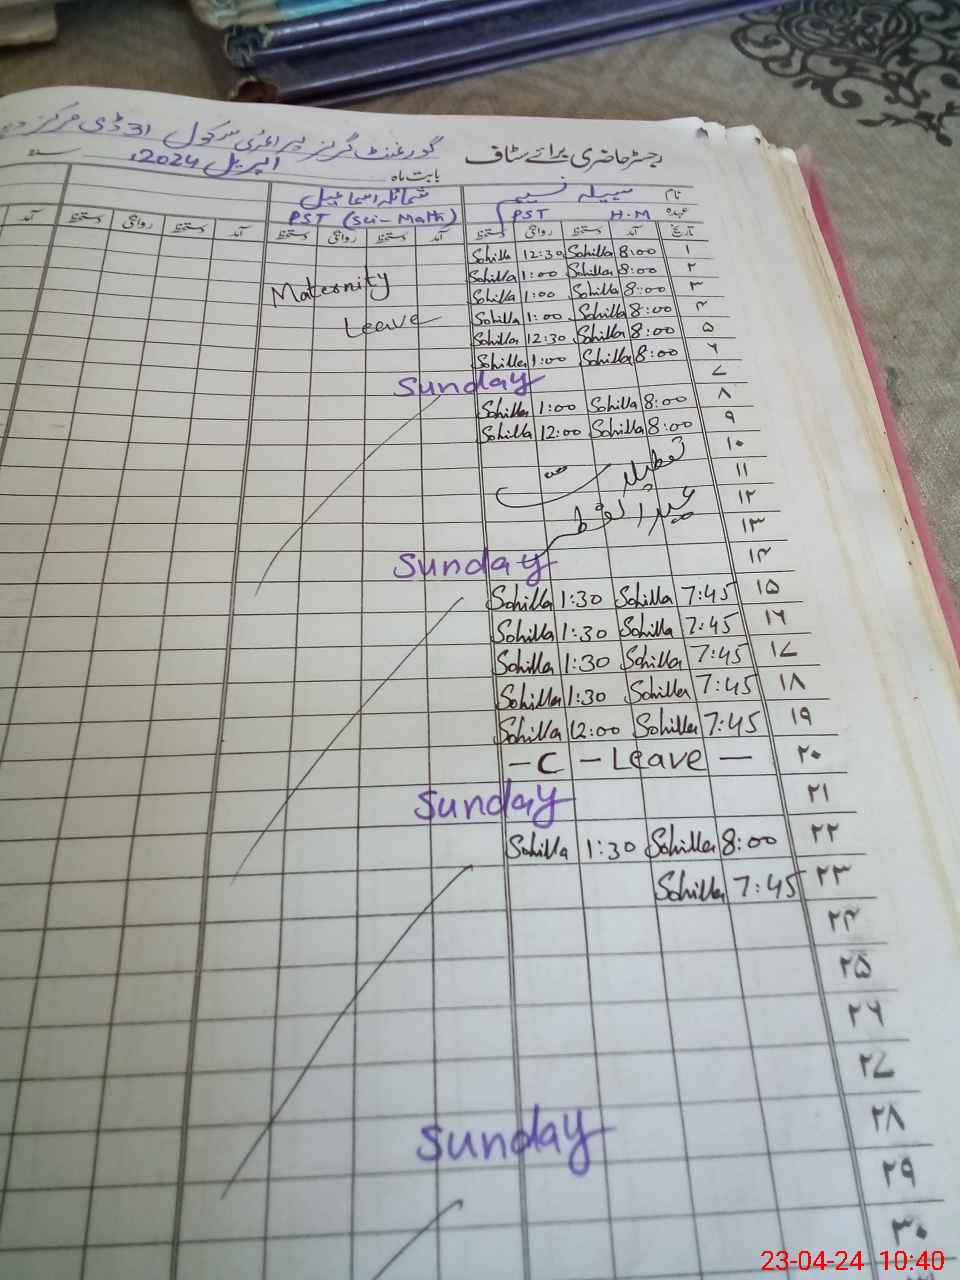 رجسٹر حاضری برائے سٹاف گورنمنٹ گرلز پرائمری سکول 31 ڈی مرکز
بابت ماہ اپریل 2024ء سنہ
نام سہیلہ نسیم شمائلہ اسماعیل
عہدہ H.M PST PST (Sci-Math)
تاریخ آمد دستخط روانگی دستخط آمد دستخط روانگی دستخط آمد دستخط روانگی دستخط آمد
۱ 8:00 Sohilla 12:30 Sohilla
۲ 8:00 Sohilla 1:00 Sohilla
۳ 8:00 Sohilla 1:00 Sohilla Maternity
۴ 8:00 Sohilla 1:00 Sohilla Leave
۵ 8:00 Sohilla 12:30 Sohilla
۶ 8:00 Sohilla 1:00 Sohilla
۷ Sunday
۸ 8:00 Sohilla 1:00 Sohilla
۹ 8:00 Sohilla 12:00 Sohilla
۱۰
۱۱ تعطیلات
۱۲ عید الفطر
۱۳
۱۴ Sunday
۱۵ 7:45 Sohilla 1:30 Sohilla
۱۶ 7:45 Sohilla 1:30 Sohilla
۱۷ 7:45 Sohilla 1:30 Sohilla
۱۸ 7:45 Sohilla 1:30 Sohilla
۱۹ 7:45 Sohilla 12:00 Sohilla
۲۰ – C – Leave –
۲۱ Sunday
۲۲ 8:00 Sohilla 1:30 Sohilla
۲۳ 7:45 Sohilla
۲۴
۲۵
۲۶
۲۷
۲۸ Sunday
۲۹
۳۰
23-04-24 10:40